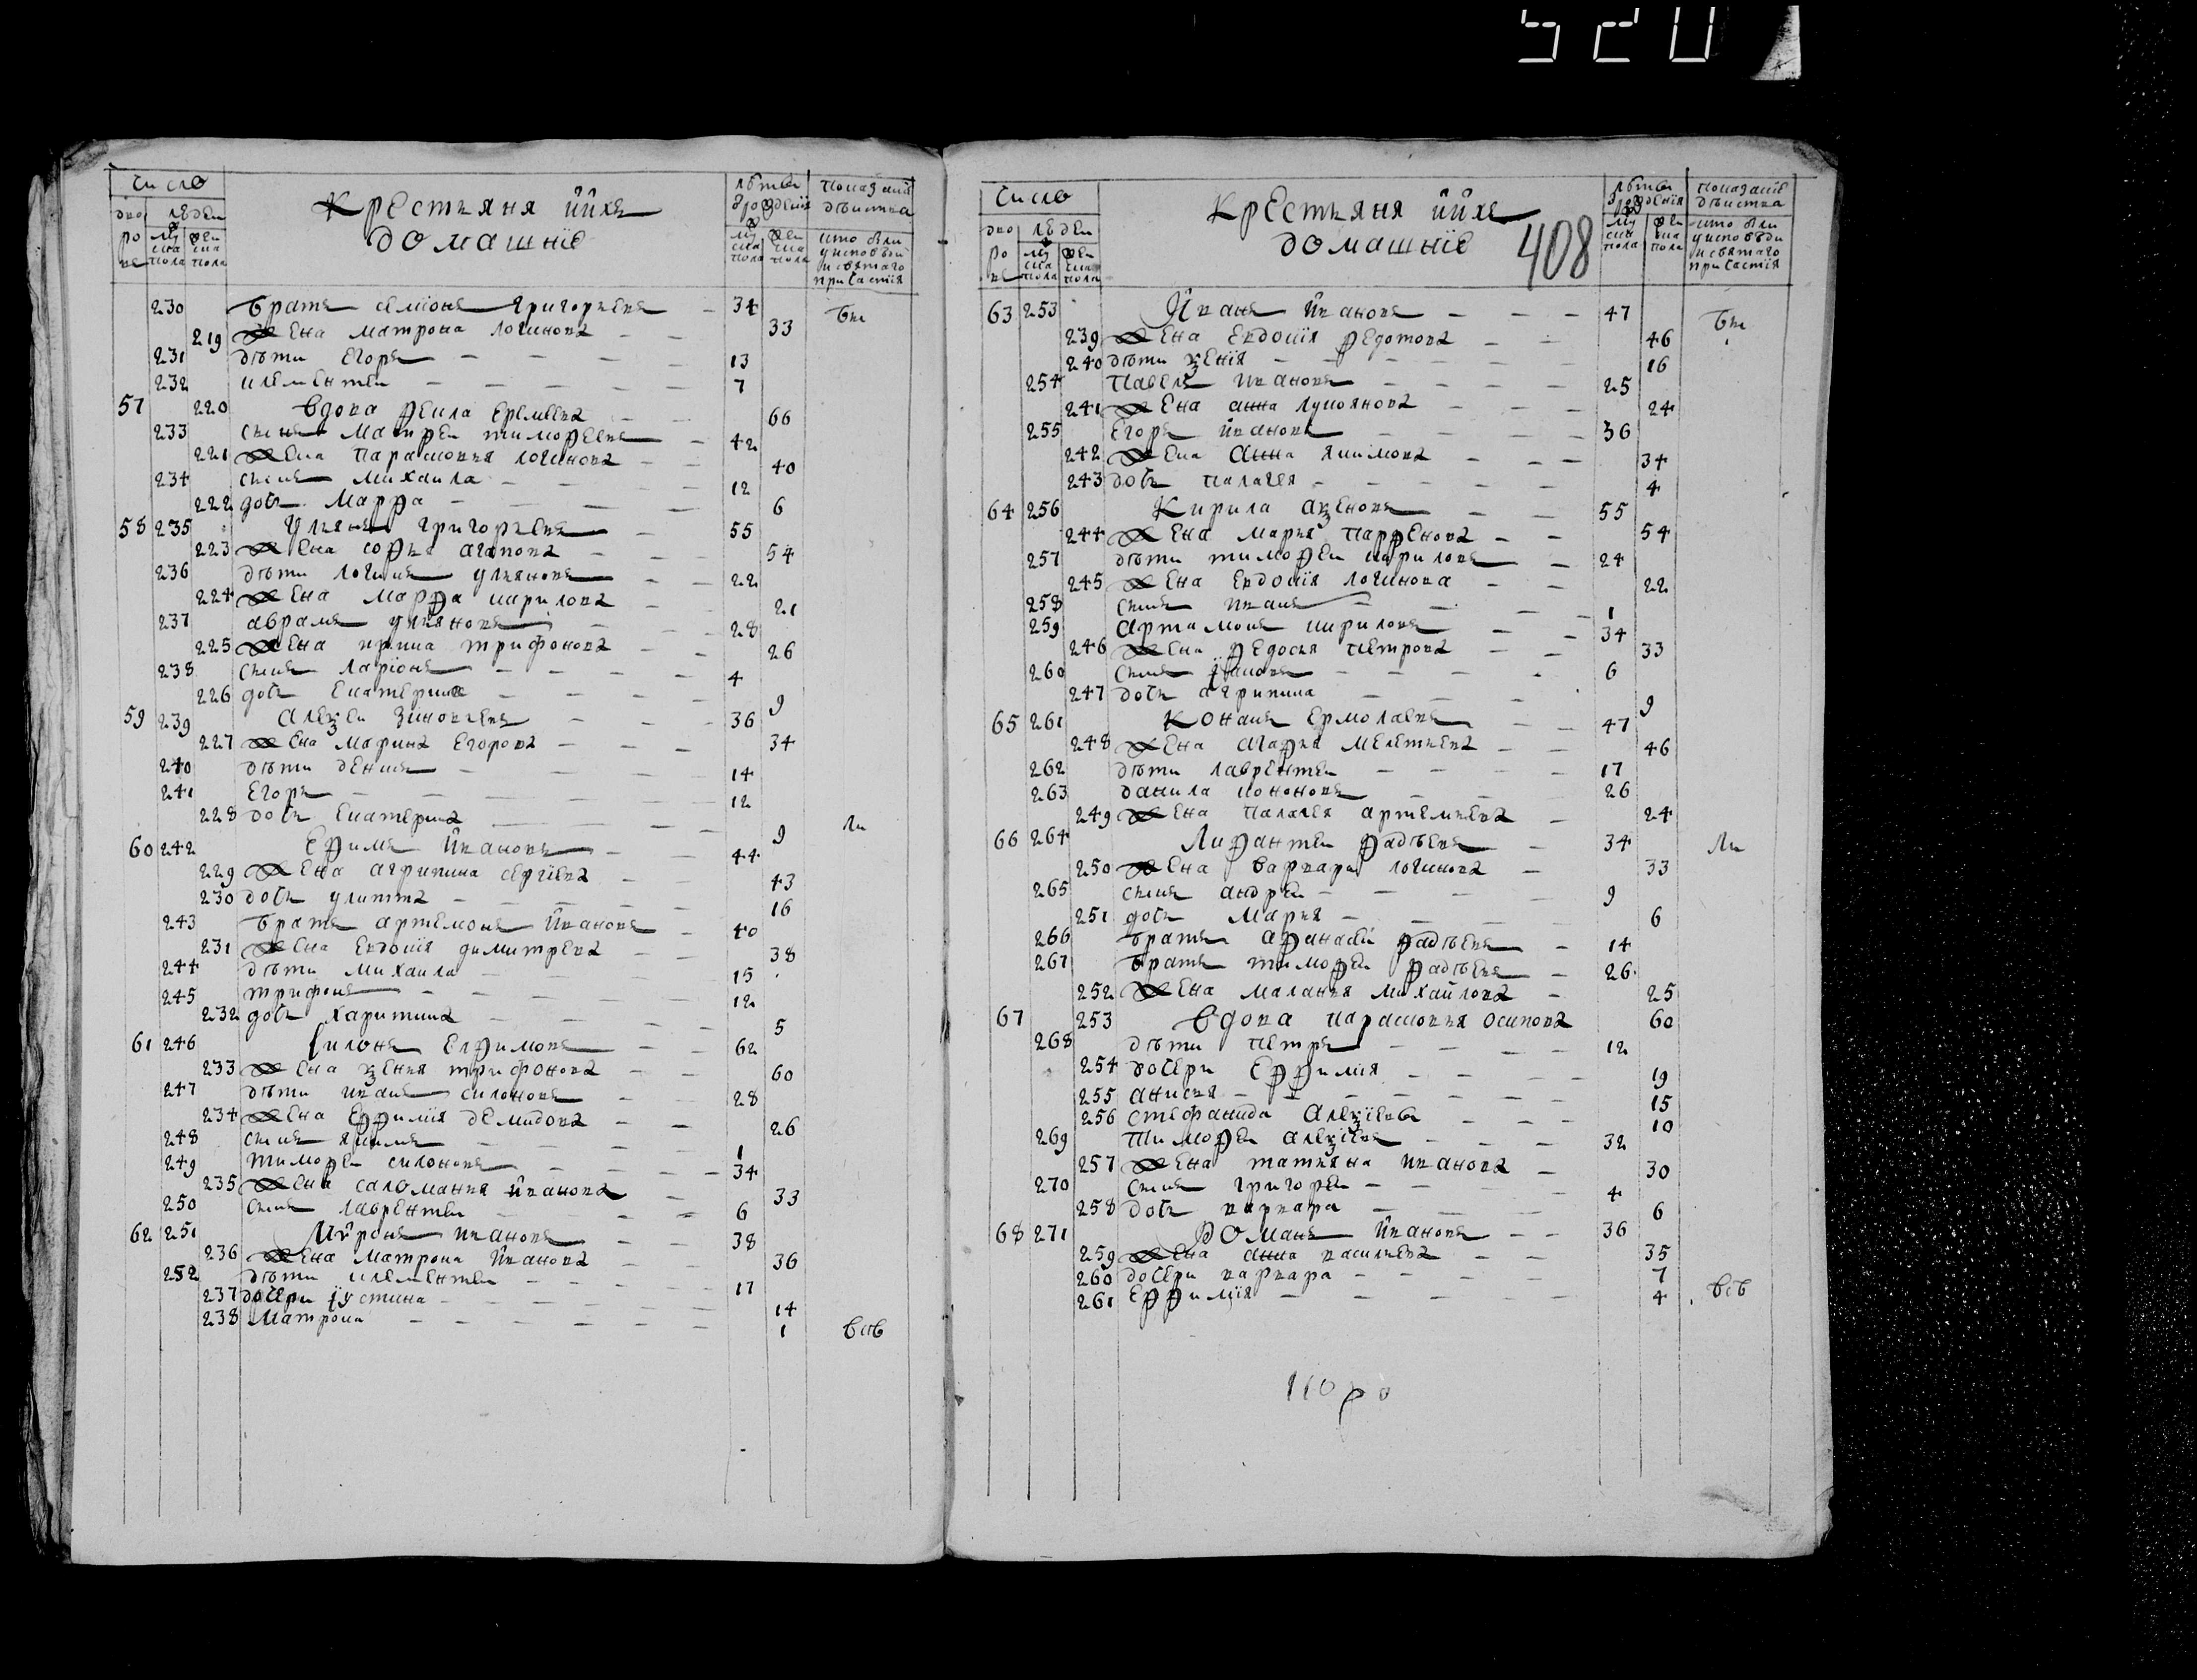 520
число
дворовъ
людей
муска пола
женска пола
Крестьяня ийхъ
домашніе
лѣты врожденія
муска пола
женска пола
показаніе дѣиства
кто были у исповѣди и святаго причастія
230 братъ семіонъ григорьевъ 34 бы
219 жена матрона логинова 33
231 дѣти егоръ 13
232 клементеи 7
57 220 вдова фекла еремеева 66
233 сынъ матфеи тимофеевъ 42
221 жена парасковья логинова 40
234 сынъ михаила 12
222 дочь марфа 6
58 235 ульянъ григорьевъ 55
223 жена софья агапова 54
236 дѣти логинъ ульяновъ 22
224 жена марфа кирилова 21
237 абрамъ ульяновъ 28
225 жена ирина трифонова 26
238 сынъ ларіонъ 4
226 дочь екатерина 9
59 239 алеѯеи зиновьевъ 36
227 жена марина егорова 34
240 дѣти денисъ 14
241 егоръ 12
228 дочь екатерина 9 ли
60 242 ефимъ ивановъ 44
229 жена агрипина сергіева 43
230 дочь улитта 16
243 братъ артемонъ ивановъ 40
231 жена евдокія димитрева 38
244 дѣти михаила 15
245 трифонъ 12
232 дочь харитина 5
61 246 силонъ ефимовъ 62
233 жена ѯенья трифонова 60
247 дѣти иванъ силоновъ 28
234 жена еффимія демидова 26
248 сынъ якимъ 1
249 тимофеи силоновъ 34
235 жена саломанья иванова 33
250 сынъ лаврентеи 6
62 251 мѵронъ ивановъ 38
236 жена матрона иванова 36
252 дѣти клементеи 17
237 дочери іустина 14
238 матрона 1 всѣ
число
дворовъ
людей
муска пола
женска пола
Крестьяня ийхъ
домашніе
408
лѣты врожденія
муска пола
женска пола
показаніе дѣиства
кто были у исповѣди и святаго причастія
63 253 иванъ ивановъ 47 бы
239 жена евдокія федотова 46
240 дѣти ѯенія 16
254 павелъ ивановъ 25
241 жена анна лукоянова 24
255 егоръ ивановъ 36
242 жена анна якимова 34
243 дочь палагея 4
64 256 Кирила аѯеновъ 55
244 жена марья парфенова 54
257 дѣти тимофеи кириловъ 24
245 жена евдокія логинова 22
258 сынъ иванъ 1
259 артамонъ кириловъ 34
246 жена федосья петрова 33
260 сынъ іаковъ 6
247 дочь агрипина 9
65 261 Конанъ ермолаевъ 47
248 жена агафья мелетьева 46
262 дѣти лаврентеи 17
263 данила кононовъ 26
249 жена палагея артемьева 24
66 264 лифантеи фадѣевъ 34 ли
250 жена варвара логинова 33
265 сынъ андреи 9
251 дочь марья 6
266 братъ афанасеи фадѣевъ 14
267 братъ тимофеи фадѣевъ 26
252 жена маланья михайлова 25
67 253 вдова парасковья осипова 60
268 дѣти петръ 12
254 дочери еффимія 19
255 анисья 15
256 стефанида алеѯіева 10
269 тимофеи алеѯіевъ 32
257 жена татьяна иванова 30
270 сынъ григореи 4
258 дочь варвара 6
68 271 романъ ивановъ 36
259 жена анна васильева 35
260 дочери варвара 7
261 еффимія 4 всѣ